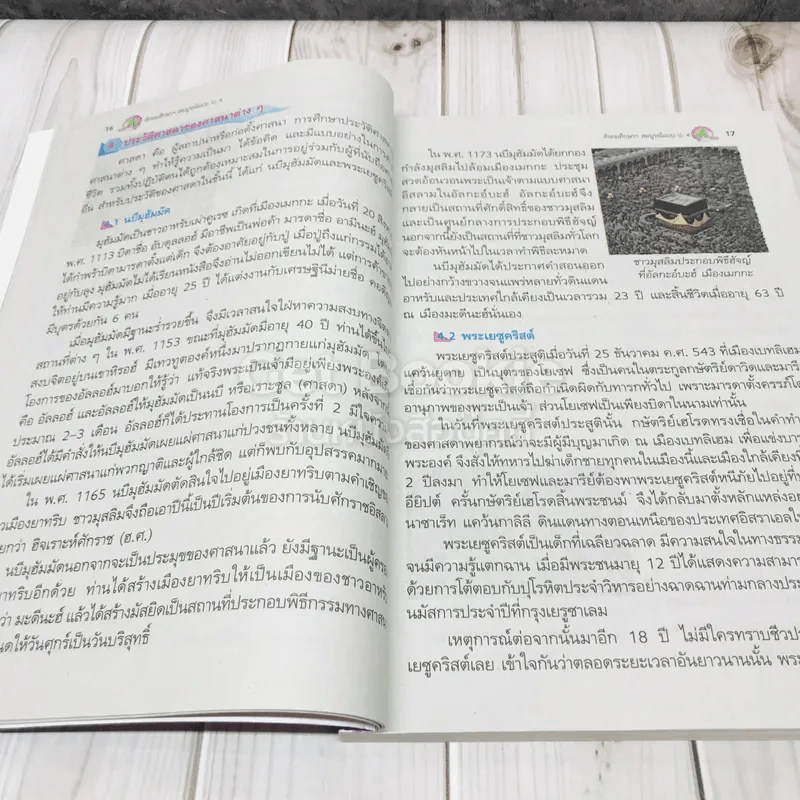 16
สังคมศึกษาฯ สมบูรณ์แบบ ป. 4
4 ประวัติศาสดาของศาสนาต่าง ๆ
ศาสดา คือ ผู้สถาปนาหรือก่อตั้งศาสนา การศึกษาประวัติศาสดา
ศาสนาต่าง ๆ ทำให้รู้ความเป็นมา ได้ข้อคิด และมีแบบอย่างในการ
ชีวิต รวมทั้งปฏิบัติตนได้ถูกต้องเหมาะสมในการอยู่ร่วมกับผู้ที่นับถือ
อื่น สำหรับประวัติของศาสดาในชั้นนี้ ได้แก่ นบีมุฮัมมัดและพระเยซูคริสต์
4.1 นบีมุฮัมมัด
มุฮัมมัดเป็นชาวอาหรับเผ่ากุเรช เกิดที่เมืองเมกกะ เมื่อวันที่ 20
พ.ศ. 1113 บิดาชื่อ อับดุลลอฮ์ มีอาชีพเป็นพ่อค้า มารดาชื่อ อามีนะฮ์
ได้กำพร้าบิดามารดาตั้งแต่เด็ก จึงต้องอาศัยอยู่กับปู่ เมื่อปู่ถึงแก่กรรมได้
อยู่กับลุง มุฮัมมัดไม่ได้เรียนหนังสือจึงอ่านไม่ออกเขียนไม่ได้ แต่การค้า
ให้ท่านมีความรู้มาก เมื่ออายุ 25 ปี ได้แต่งงานกับเศรษฐินีม่ายชื่อ
มีบุตรด้วยกัน 6 คน
เมื่อมุฮัมมัดมีฐานะร่ำรวยขึ้น จึงมีเวลาสนใจใฝ่หาความสงบทางจิต
สถานที่ต่าง ๆ ใน พ.ศ. 1153 ขณะที่มุฮัมมัดมีอายุ 40 ปี ท่านได้ขึ้น
สงบจิตอยู่บนเขาหิรอฮ์ มีเทวทูตองค์หนึ่งมาปรากฏกายแก่มุฮัมมัด
โองการของอัลลอฮ์มาบอกให้รู้ว่า แท้จริงพระเป็นเจ้ามีอยู่เพียงพระองค์
คือ อัลลอฮ์ และอัลลอฮ์ให้มุฮัมมัดเป็นนบี หรือเราะซูล (ศาสดา) หลังจาก
ประมาณ 2–3 เดือน อัลลอฮ์ก็ได้ประทานโองการเป็นครั้งที่ 2 มีใจ
อัลลอฮ์ได้มีคำสั่งให้นบีมุฮัมมัดเผยแผ่ศาสนาแก่ปวงชนทั้งหลาย นบีมุฮัมมัด
ได้เริ่มเผยแผ่ศาสนาแก่พวกญาติและผู้ใกล้ชิด แต่ก็พบกับอุปสรรคมาก
ใน พ.ศ. 1165 นบีมุฮัมมัดตัดสินใจไปอยู่เมืองยาทริบตามคำเชิญ
เมืองยาทริบ ชาวมุสลิมจึงถือเอาปีนี้เป็นปีเริ่มต้นของการนับศักราชอิสลาม
ยกว่า ฮิจเราะห์ศักราช (ฮ.ศ.)
นบีมุฮัมมัดนอกจากจะเป็นประมุขของศาสนาแล้ว ยังมีฐานะเป็นผู้
าทริบอีกด้วย ท่านได้สร้างเมืองยาทริบให้เป็นเมืองของชาว
ว่า มะดีนะฮ์ แล้วได้สร้างมัสยิดเป็นสถานที่ประกอบพิธีกรรมทางศาสนา
นดให้วันศุกร์เป็นวันบริสุทธิ์
สังคมศึกษาฯ สมบูรณ์แบบ ป. 4
17
ใน พ.ศ. 1173 นบีมุฮัมมัดได้ยกกอง
กำลังมุสลิมไปล้อมเมืองเมกกะ ประชุม
สวดอ้อนวอนพระเป็นเจ้าตามแบบศาสนา
อิสลามในอัลกะอ์บะฮ์ อัลกะอ์บะฮ์จึง
กลายเป็นสถานที่ศักดิ์สิทธิ์ของชาวมุสลิม
และเป็นศูนย์กลางการประกอบพิธีฮัจญ์
นอกจากนี้ยังเป็นสถานที่ที่ชาวมุสลิมทั่วโลก
จะต้องหันหน้าไปในเวลาทำพิธีละหมาด
ชาวมุสลิมประกอบพิธีฮัจญ์
ที่อัลกะอ์บะฮ์ เมืองเมกกะ
นบีมุฮัมมัดได้ประกาศคำสอนออก
ไปอย่างกว้างขวางจนแพร่หลายทั่วดินแดน
อาหรับและประเทศใกล้เคียงเป็นเวลารวม 23 ปี และสิ้นชีวิตเมื่ออายุ 63 ปี
ณ เมืองมะดีนะฮ์นั่นเอง
4.2 พระเยซูคริสต์
พระเยซูคริสต์ประสูติเมื่อวันที่ 25 ธันวาคม ค.ศ. 543 ที่เมืองเบทลิเฮม
แคว้นยูดาย เป็นบุตรของโยเซฟ ซึ่งเป็นคนในตระกูลกษัตริย์ดาวิดและมารีย์
เชื่อกันว่าพระเยซูคริสต์ถือกำเนิดผิดกับทารกทั่วไป เพราะมารดาตั้งครรภ์โดย
อานุภาพของพระเป็นเจ้า ส่วนโยเซฟเป็นเพียงบิดาในนามเท่านั้น
ในวันที่พระเยซูคริสต์ประสูตินั้น กษัตริย์เฮโรดทรงเชื่อในคำทำ
ของศาสดาพยากรณ์ว่าจะมีผู้มีบุญมาเกิด ณ เมืองเบทลิเฮม เพื่อแข่งบา
พระองค์ จึงสั่งให้ทหารไปฆ่าเด็กชายทุกคนในเมืองนี้และเมืองใกล้เคียงที่
2 ปีลงมา ทำให้โยเซฟและมารีย์ต้องพาพระเยซูคริสต์หนีภัยไปอยู่ที่
อียิปต์ ครั้นกษัตริย์เฮโรดสิ้นพระชนม์ จึงได้กลับมาตั้งหลักแหล่งอยู่
นาซาเร็ท แคว้นกาลิลี ดินแดนทางตอนเหนือของประเทศอิสราเอล
พระเยซูคริสต์เป็นเด็กที่เฉลียวฉลาด มีความสนใจในทางธรรม
จนมีความรู้แตกฉาน เมื่อมีพระชนมายุ 12 ปีได้แสดงความสามารถ
ด้วยการโต้ตอบกับปุโรหิตประจำวิหารอย่างฉาดฉานท่ามกลางประ
นมัสการประจำปีที่กรุงเยรูซาเลม
เหตุการณ์ต่อจากนั้นมาอีก 18 ปี ไม่มีใครทราบชีวประ
เยซูคริสต์เลย เข้าใจกันว่าตลอดระยะเวลาอันยาวนานนั้น พระ